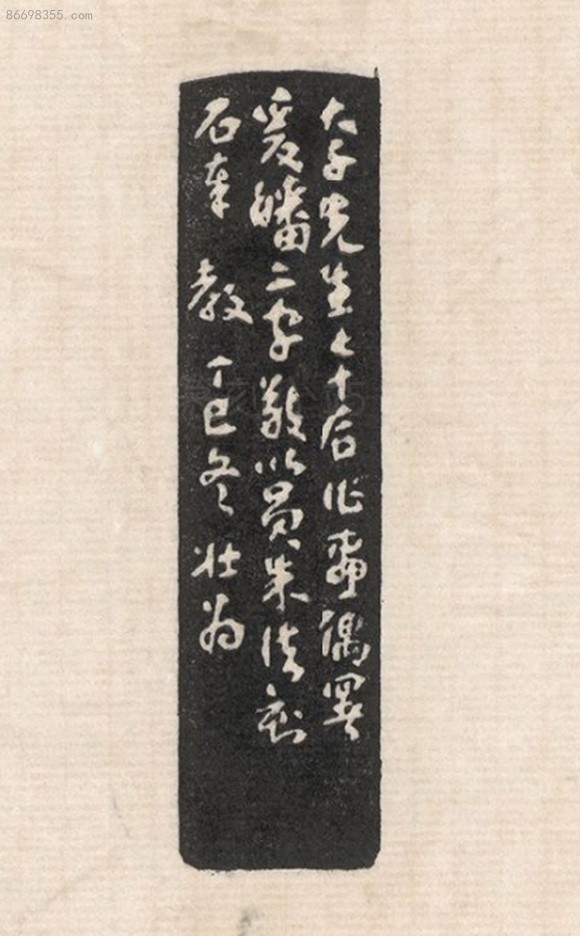 86698355.com
大千先生七十后作画偶署
爰皤二字敬以员朱法刻
石奉 教 丁巳冬 壮为